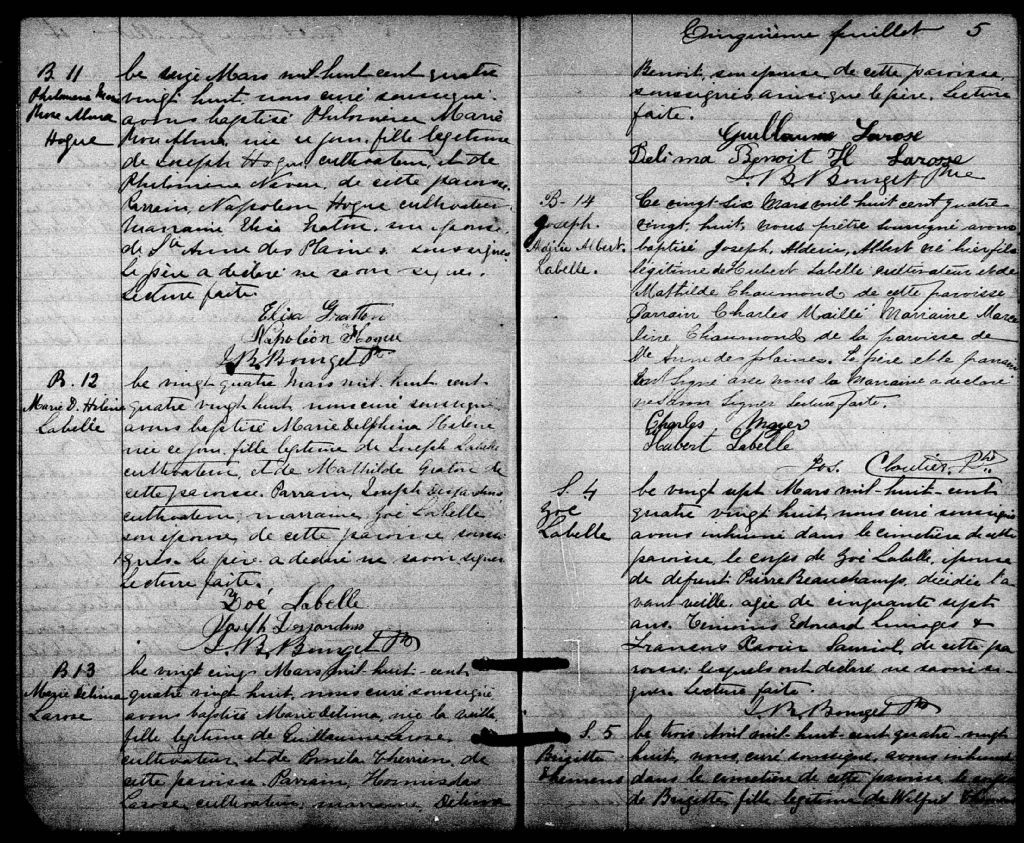 B 11
Philomene Marie
Rose Alma
Hogue
Le seize Mars mil-huit-cent quatre
vingt huit, nous curé soussigné
avons baptisé Philomene Marie
Rose Alma, née ce jour, fille legitime
de Joseph Hogue cultivateur, et de
Philomene Neveu, de cette paroisse.
Parrain, Napoleon Hogue cultivateur
Marraine Elisa Graton, son epouse,
de Ste Anne des Plaines soussignés
Le père a declaré ne savoir signer.
Lecture faite.
Elisa Gratton
Napoléon Hogue
J. B. Bourget Ptre
B. 12
Marie D. Hélène
Labelle
Le vingt quatre Mars mil-huit-cent-
quatre vingt huit, nous curé soussigné
avons baptisé Marie Delphina Hélène
née ce jour, fille legitime de Joseph Labelle
cultivateur, et de Mathilde Graton de
cette paroisse. Parrain, Joseph Desjardins
cultivateur, marraine, Zoé Labelle
son épouse, de cette paroisse soussi-
gnés. le père a declaré ne savoir signer
Lecture faite.
Zoé Labelle
Joseph Desjardins
J. B. Bourget Ptre
B 13
Marie Delima
Larose
Le vingt cinq Mars mil-huit-cent-
quatre vingt huit, nous curé soussigné
avons baptisé Marie Delima, née la veille
fille legitime de Guillaume Larose,
cultivateur et de Therrien, de
cette paroisse. Parrain, Hormisdas
Larose, cultivateur, marraine, Délima
Cinquième feuillet 5
Benoit, son epouse de cette paroisse,
soussignés ainsi que le père. Lecture
faite.
Guillaume Larose
Delima Benoit H Larose
J. B. Bourget Ptre
B - 14
Joseph.
Albert.
Labelle.
Le vingt-six Mars mil huit cent quatre
vingt huit, nous prêtre soussigné avons
baptisé Joseph, Albert né hier fils
légitime de Hubert Labelle cultivateur et de
Mathilde Chaumond de cette paroisse
Parrain Charles Maillé Marraine Marce
line Chaumond de la paroisse de
Ste Anne des plaines. Le père et le parrain
ont signé avec nous la Marraine a declaré
ne savoir signer Lecture faite.
Charles Mayer
Hubert Labelle
Jos. Cloutier, Ptre
S. 4
Zoé
Labelle
Le vingt sept Mars mil-huit-cent
quatre vingt huit, nous curé soussigné
avons inhumé dans le cimetière de cette
paroisse le corps de Zoé Labelle, épouse
de defunt Pierre Beauchamp, décédée l'a
vant veille, agée de cinquante sept
ans. Témoins Edouard Limoges &
Francois Xavier de cette pa
roisse lesquels ont declaré ne savoir si-
gner. Lecture faite.
J. B. Bourget Ptre
S. 5
Brigitte
Therriens
Le trois Avril mil-huit-cent quatre-vingt
huit, nous, curé soussigné, avons inhumé
dans le cimetière de cette paroisse le corps
de Brigitte, fille legitime de Wilfrid Therrien